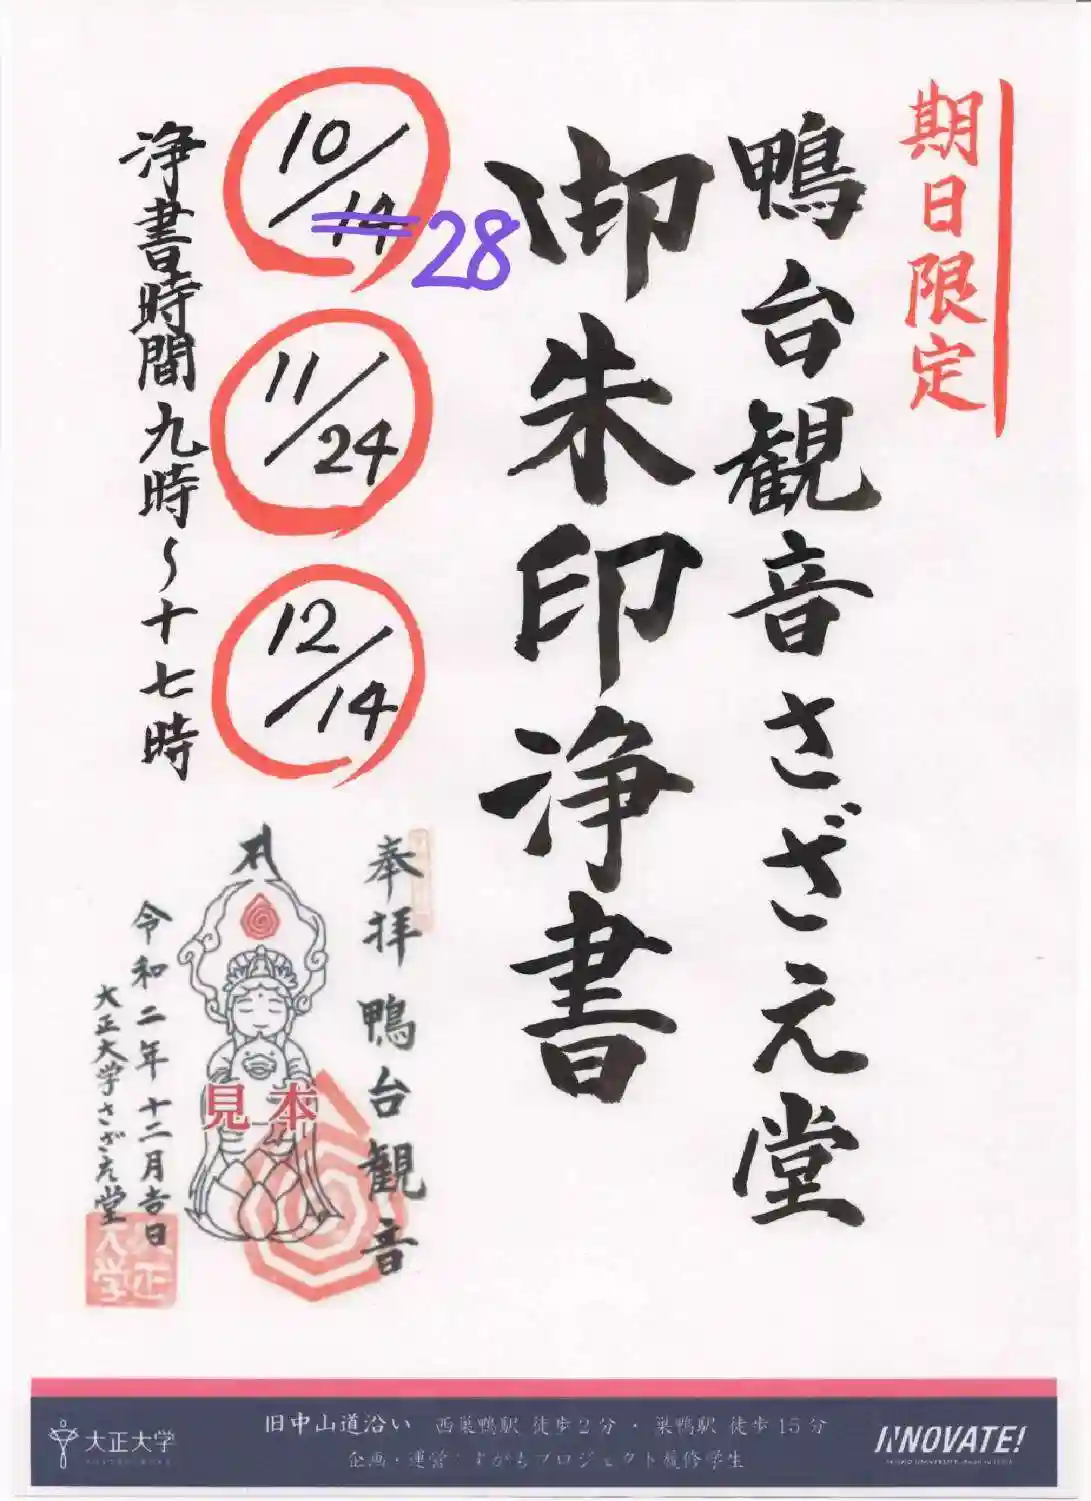 期日限定
鴨台観音さざえ堂
御朱印浄書
10/14 28
11/24
12/14
浄書時間九時~十七時
奉拝 鴨台観音
見本
令和二年十二月吉日
大正大学さざえ堂
大正
大学
大正大学
旧中山道沿い 西巣鴨駅 徒歩2分・巣鴨駅 徒歩15分
企画・運営:すがもプロジェクト履修学生
INNOVATE!